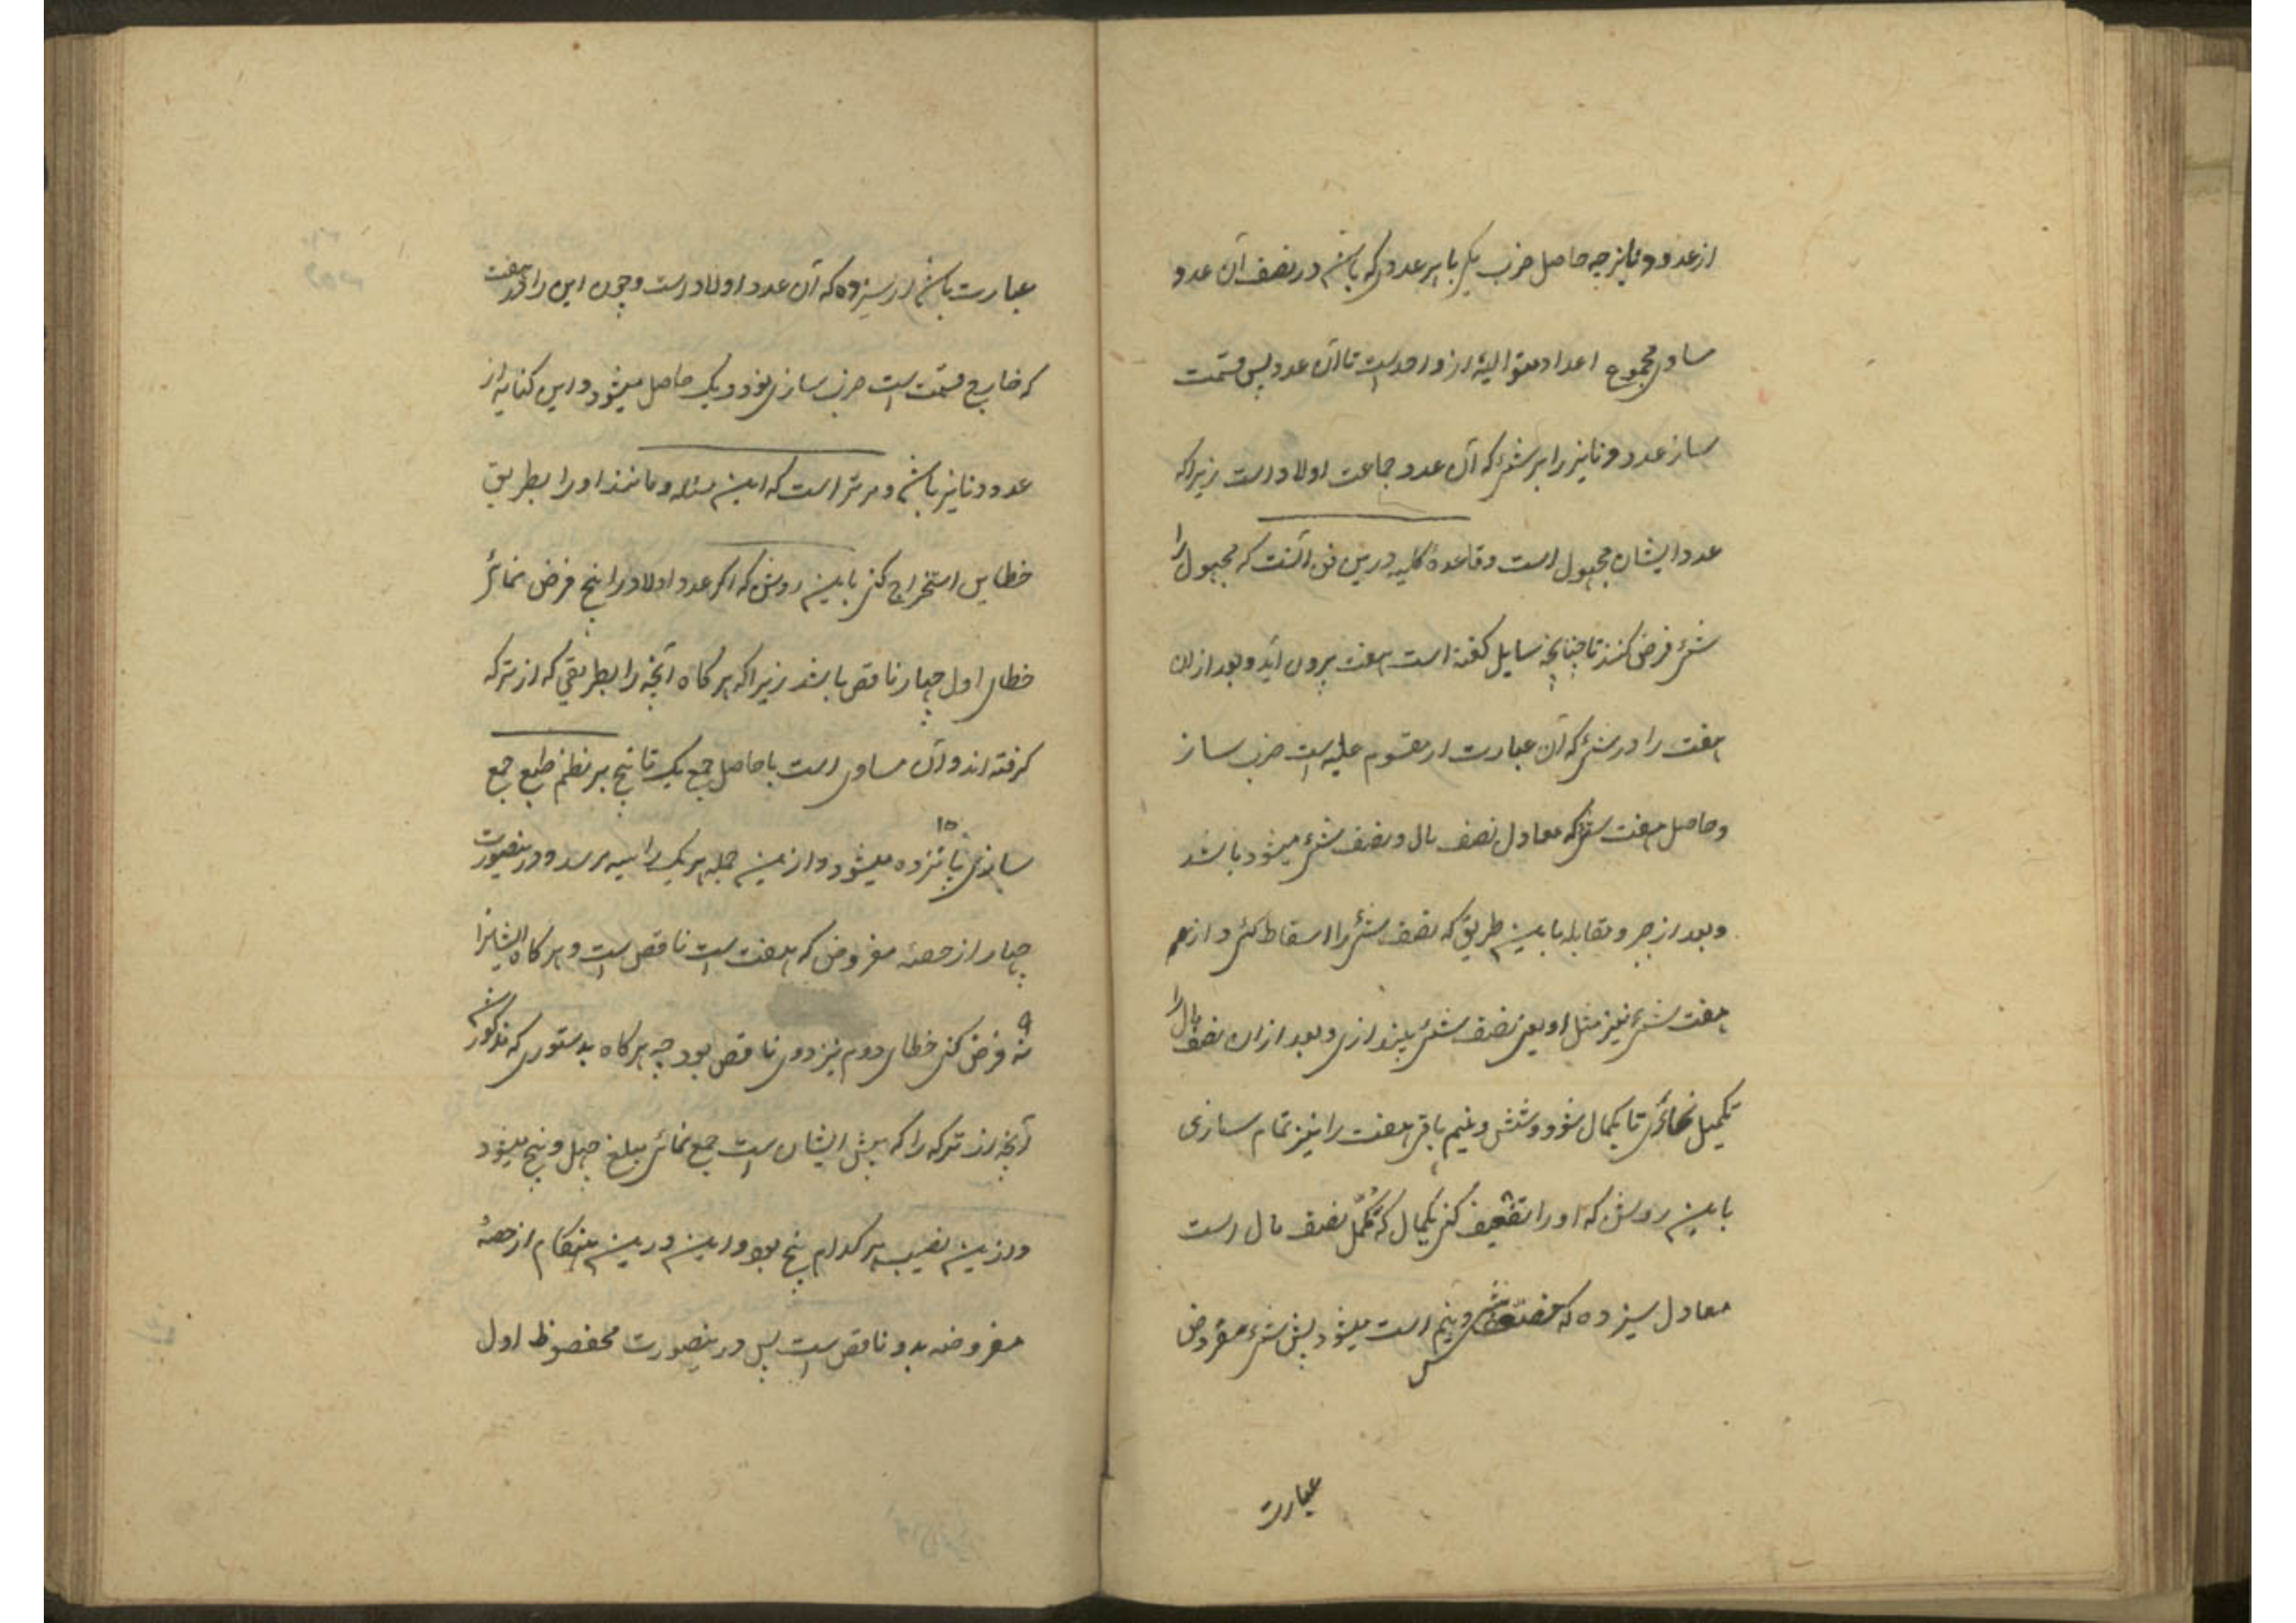 از عدد دنانیر چه حاصل ضرب یکی با هر عددی که باشد در نصف آن عدد
مساوی مجموع اعداد متوالیهٔ از واحدست تا آن عدد پس قسمت
ساز عدد دنانیر را بر شئ که آن عدد جماعت اولاد است زیرا که
عدد ایشان مجهول است و قاعدهٔ کلیه درین فن آنست که مجهول را
شئ فرض کنند تا چنانچه سایل گفته است هفت برون آید و بعد ازان
هفت را در شئ که آن عبارت از مقسوم علیه است ضرب ساز
و حاصل هفت شئ که معادل نصف مال و نصف شئ میشود باشد
و بعد از جبر و مقابله باین طریق که نصف شئ را اسقاط کنی و از
هفت شئ نیز مثل او یعنی نصف شئ بیندازی و بعد ازان نصف مال را
تکمیل نمائی تا یکمال شود و شش و نیم باقی هفت را نیز تمام سازی
باین روش که او را تضعیف کنی یکمال که مکمل نصف مال است
معادل سیزده که و نیم است میشود پس شئ مفروض
عبارت
عبارت باشد از سیزده که آن عدد اولاد است و چون این را در هفت
که خارج قسمت است ضرب سازی نود و یک حاصل میشود و این کنایه از
عدد دنانیر باشد و مر تراست که این مسئله و مانند او را بطریق
خطاین استخراج کنی باین روش که اگر عدد اولاد را پنج فرض نمائی
خطای اول چهار ناقص باشد زیرا که هر کاه آنچه را بطریقی که از ترکه
کرفته اند و آن مساوی است با حاصل جمع یک تا پنج بر نظم طبع جمع
سازی پانزده ۱۵ میشود و ازین جمله هر یک را سه میرسد و درینصورت
چهار از حصهٔ مفروض که هفت است ناقص است و هر کاه ایشانرا
نه ۹ فرض کنی خطای دوم نیز دوی ناقص بود چه هر کاه بدستوری که مذکور شد
آنچه از ترکه را که پیش ایشان است جمع نمائی مبلغ چهل و پنج میشود
و ازین نصیب هر کدام پنج بود و این درین هنکام از حصهٔ
مفروضه بدو ناقص است پس درینصورت محفوظ اول